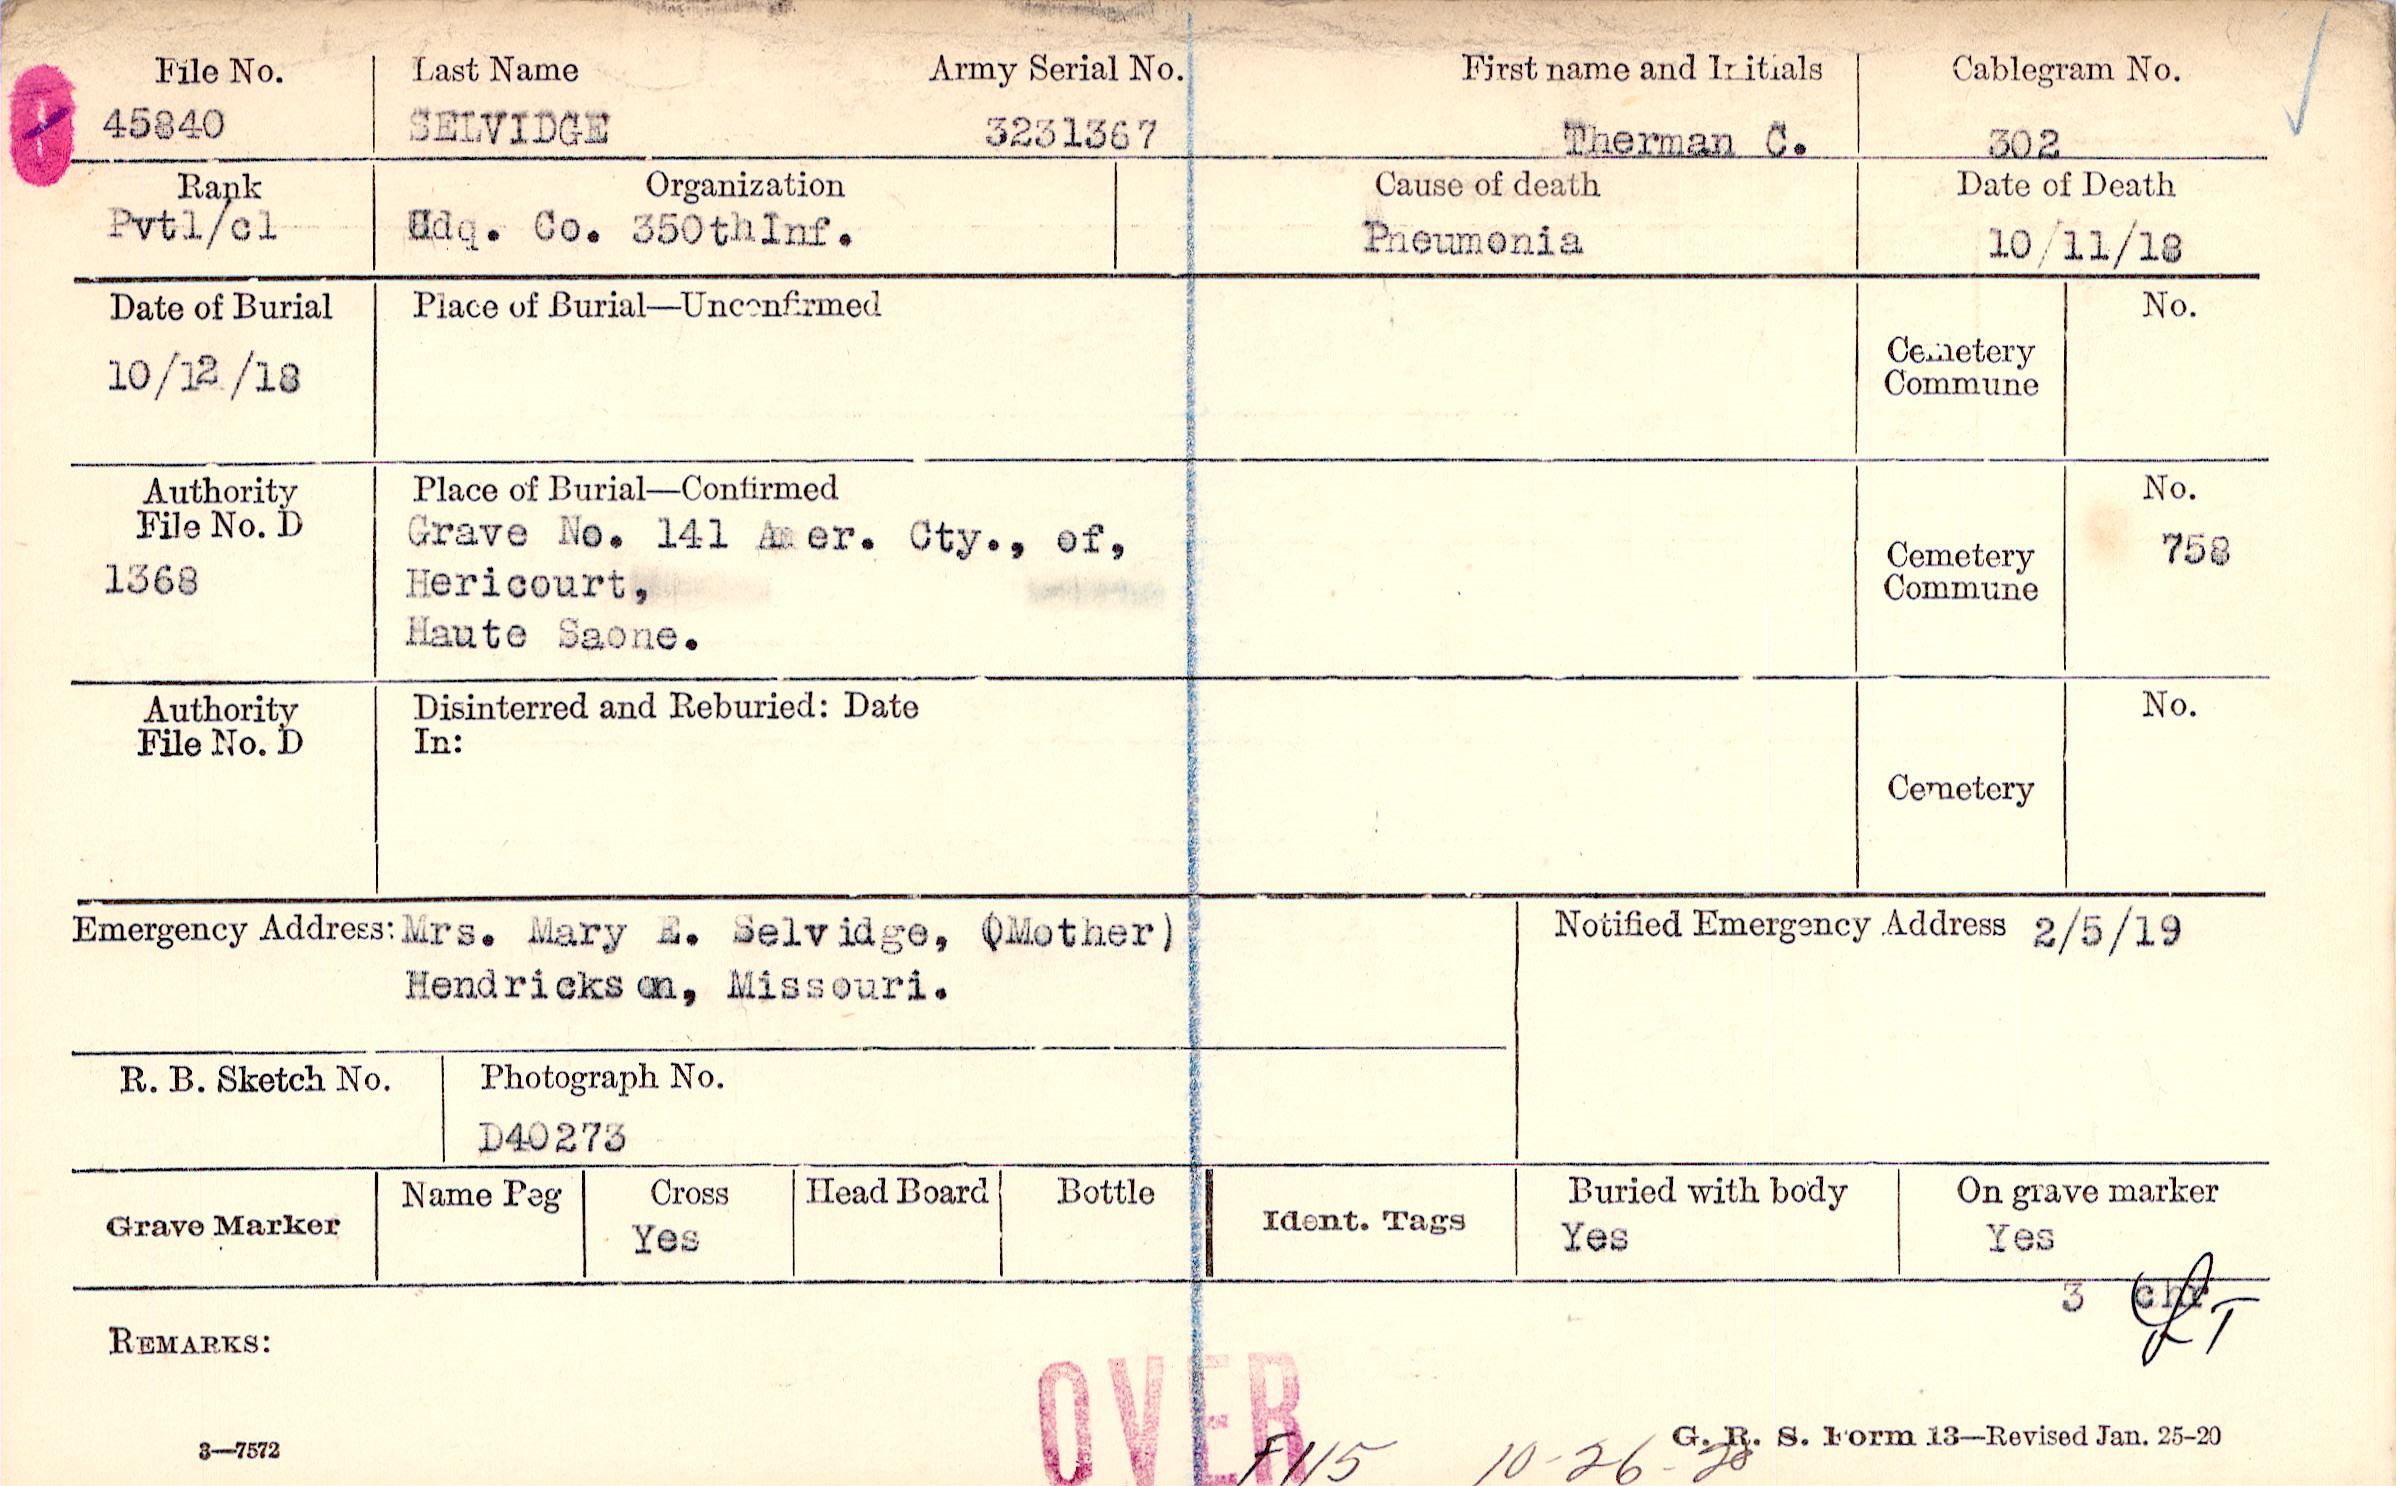 File No. Last Name Army Serial No. First name and Initials Cablegram No.
45840 SELVIDGE 3231367 Therman C. 302
Rank Organization Cause of death Date of Death
Pvt1/cl Hdq. Co. 350thInf. Pneumonia 10/11/18
Date of Burial Place of Burial—Unconfirmed No.
10/12/18 Cemetery
Commune
Authority Place of Burial—Confirmed No.
File No. D Grave No. 141 Amer. Cty., of, 758
1368 Hericourt, Cemetery
Commune
Haute Saone.
Authority Disinterred and Reburied: Date No.
File No. D In:
Cemetery
Emergency Address: Mrs. Mary E. Selvidge, (Mother) Notified Emergency Address 2/5/19
Hendrickson, Missouri.
R. B. Sketch No. Photograph No.
D40273
Grave Marker Name Peg Cross Head Board Bottle Ident. Tags Buried with body On grave marker
Yes Yes Yes
3 chr
REMARKS:
OVER
3—7572 G. R. S. Form 13—Revised Jan. 25-20
F115 10-26-